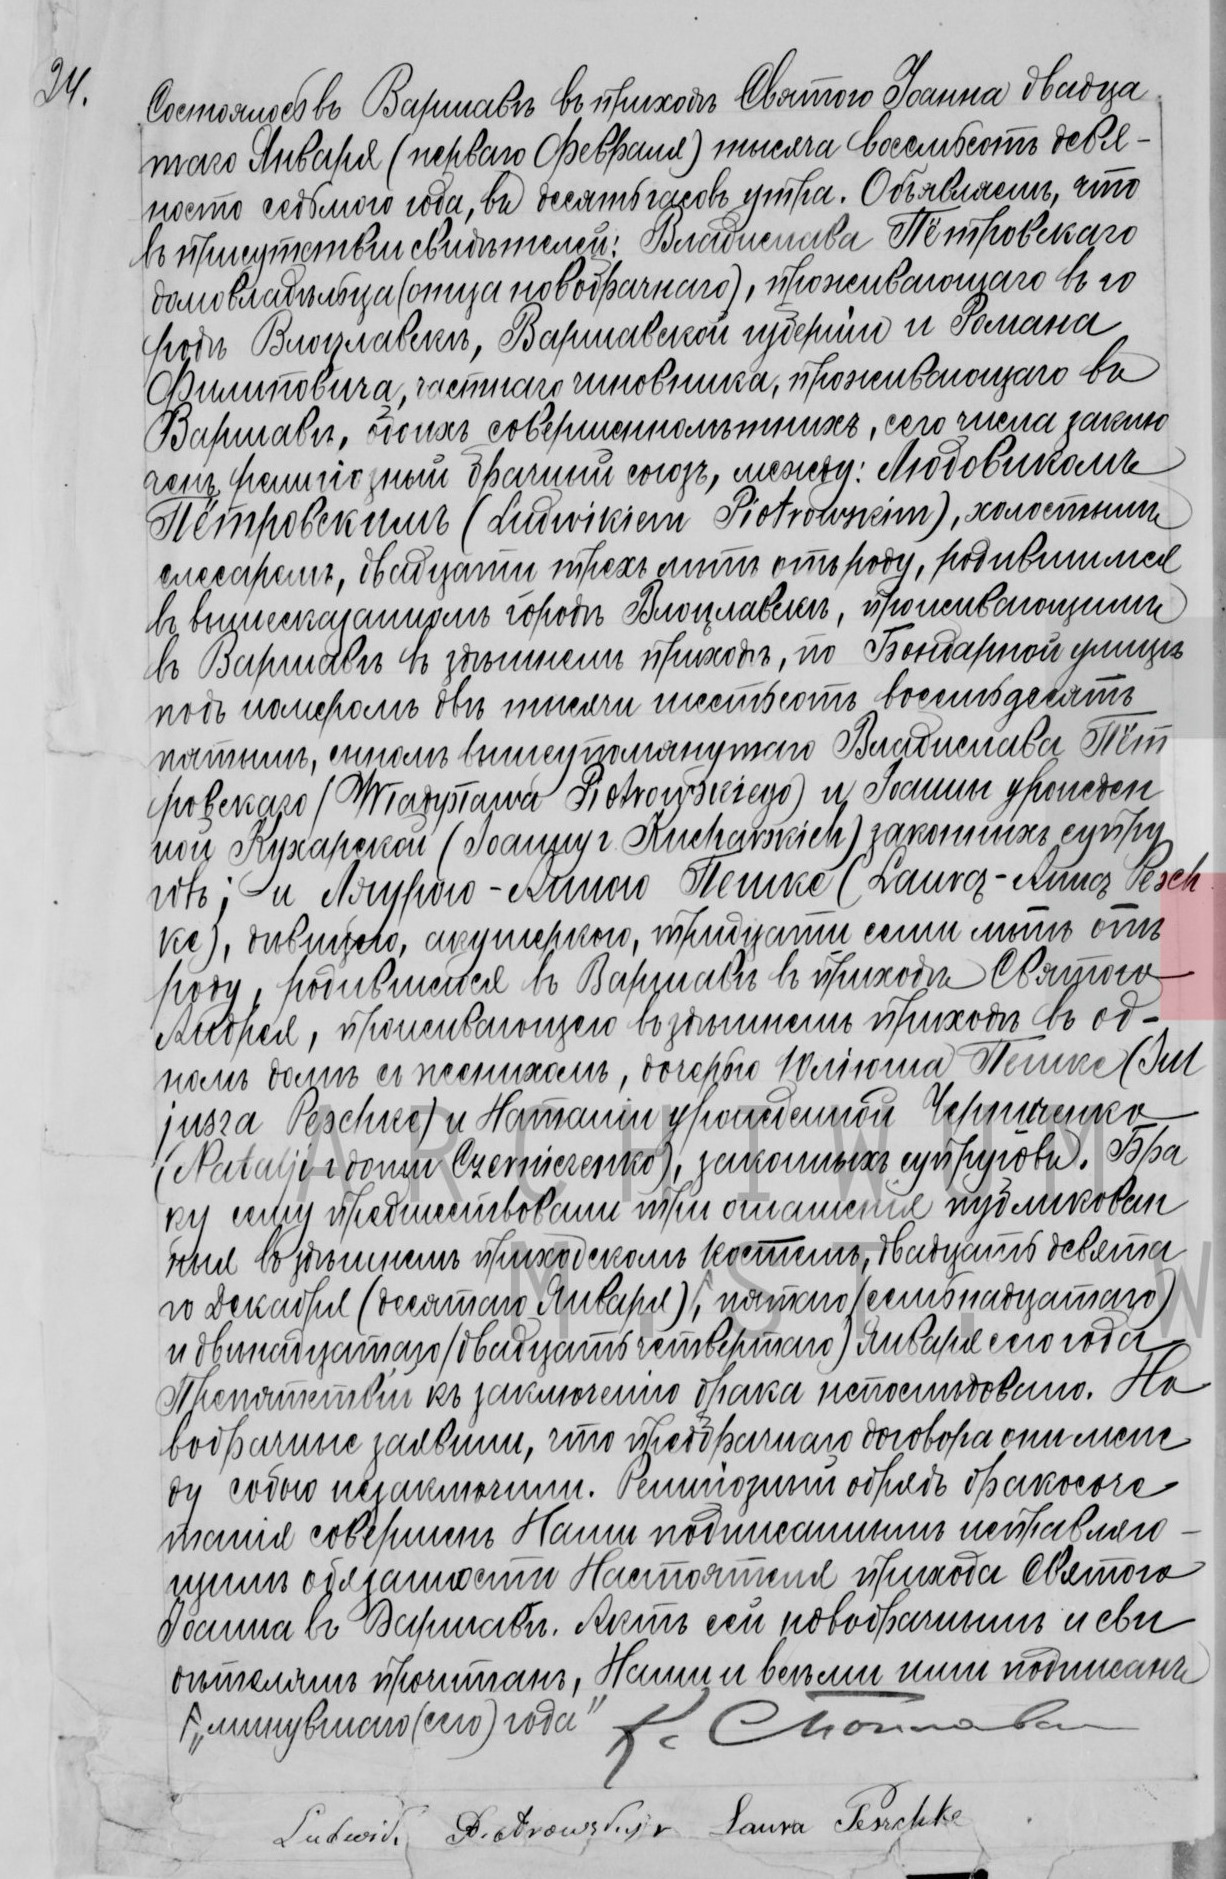 24.
Состоялось въ Варшавѣ въ приходѣ Святого Іоанна двадца
таго Января (перваго Февраля) тысяча восемьсотъ девя-
носто седьмого года, въ десять часовъ утра. Объявляемъ, что
въ присутствіи свидѣтелей: Владислава Пётровскаго
домовладѣльца (отца новобрачнаго), проживающаго въ го
родѣ Влоцлавскѣ, Варшавской губерніи и Романа
Филиповича, частнаго чиновника, проживающаго въ
Варшавѣ, обоихъ совершеннолѣтнихъ, сего числа заклю
ченъ религіозный брачный союзъ, между: Людовикомъ
Пётровскимъ (Ludwikiem Piotrowskim), холостымъ
слесаремъ, двадцати трехъ лѣтъ отъ роду, родившимся
въ вышесказанномъ городѣ Влоцлавскѣ, проживающимъ
въ Варшавѣ въ здѣшнемъ приходѣ, по Бондарной улицѣ
подъ номеромъ двѣ тысячи шестьсотъ восемьдесятъ
пятымъ, сыномъ вышеупомянутаго Владислава Пёт
ровскаго (Władysława Piotrowskiego) и Іоанны урожден
ной Кухарской (Joanny z Kucharskich) законныхъ супру
говъ; и Ляурою-Анною Пешке (Laurą-Anną Pesch
ke), дѣвицею, акушеркою, тридцати семи лѣтъ отъ
роду, родившейся въ Варшавѣ въ приходѣ Святого
Андрея, проживающею въ здѣшнемъ приходѣ въ од-
номъ домѣ съ женихомъ, дочерью Юліюша Пешке (Jul
jusza Peschke) и Наталіи урожденной Черниченко
(Natalji z domu Czerniczenko), законныхъ супруговъ. Бра
ку сему предшествовали три оглашенія публикован
ныя въ здѣшнемъ приходскомъ костелѣ, двадцать девята
го Декабря (десятаго Января) Г, пятаго (семьнадцатаго)
и двѣнадцатаго (двадцать четвертаго) Января сего года
Препятствій къ заключенію брака непослѣдовало. Но
вобрачные заявили, что предбрачнаго договора они меж
ду собою незаключили. Религіозный обрядъ бракосоче
танія совершенъ Нами подписаннымъ исправляю-
щимъ обязанности Настоятеля прихода Святого
Іоанна въ Варшавѣ. Актъ сей новобрачнымъ и сви
дѣтелямъ прочитанъ, Нами и всѣми ими подписанъ
Г „минувшаго (сего) года"
Ludwik Piotrowski Laura Peschke
ARCHIWUM
M. ST. W